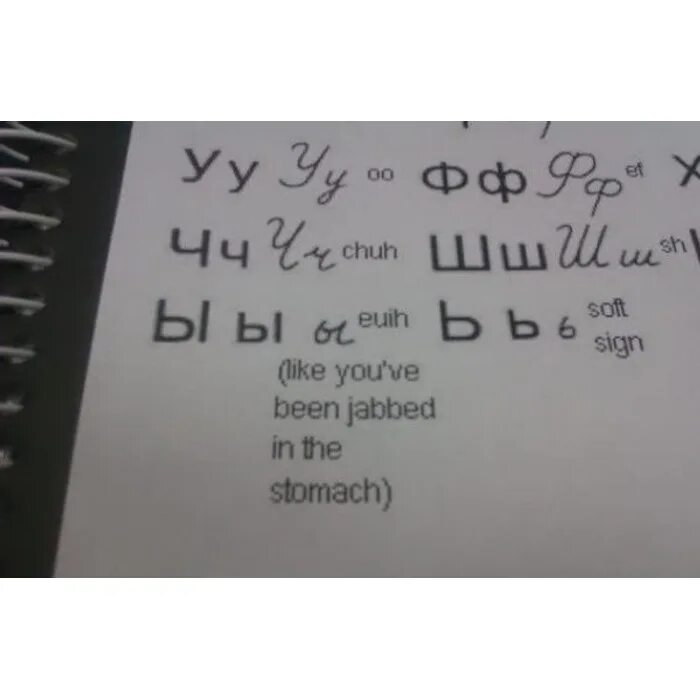 Уу Уу oo Фф Фф ef Х
Чч Чч chuh Шш Шш sh
Ы ы ы euih Ь ь ь soft sign
(like you've
been jabbed
in the
stomach)